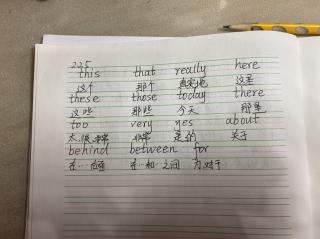 2.25
this that really here
这个 那个 真实地 这里
these those today there
这些 那些 今天 那里
too very yes about
太、很、非常 非常 是的 关于
behind between for
在…后面 在…和…之间 为,对于